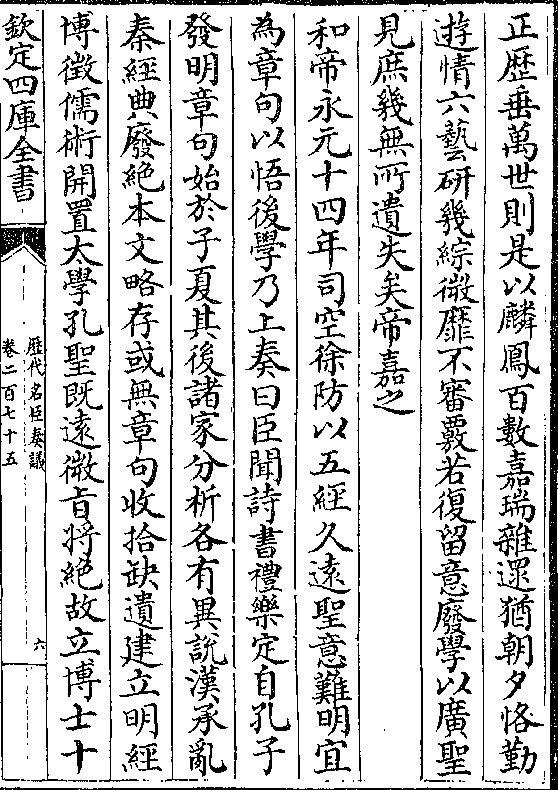 正歴垂萬世則是以麟鳳百數嘉瑞雜遝猶朝夕恪勤
遊情六藝研幾綜微靡不審覈若復留意廢學以廣聖
見庶幾無所遺失矣帝嘉之
和帝永元十四年司空徐防以五經久遠聖意難明宜
為章句以悟後學乃上奏曰臣聞詩書禮樂定自孔子
發明章句始於子夏其後諸家分析各有異說漢承亂
秦經典廢絶本文略存或無章句收拾缺遺建立明經
博徵儒術開置太學孔聖既遠微旨將絶故立博士十
欽定四庫全書
歴代名臣奏議
卷二百七十五
六